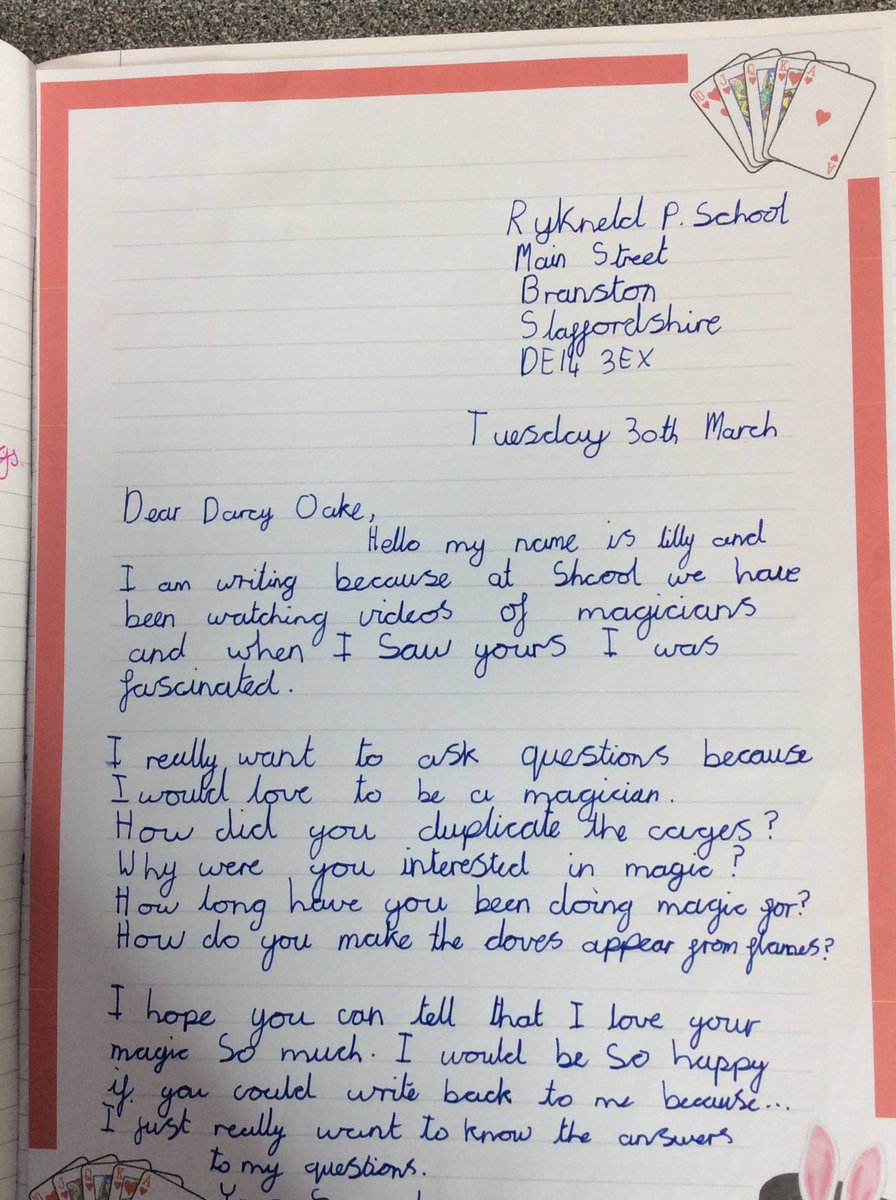 Rykneld P. School
Main Street
Branston
Staffordshire
DE14 3EX
Tuesday 30th March
Dear Darcy Oake,
Hello my name is lilly and
I am writing because at Shcool we have
been watching videos of magicians
and when I Saw yours I was
fascinated.
I really want to ask questions because
I would love to be a magician.
How did you duplicate the cages?
Why were you interested in magic?
How long have you been doing magic for?
How do you make the doves appear from flames?
I hope you can tell that I love your
magic So much. I would be So happy
if you could write back to me because...
I just really want to know the answers
to my questions.